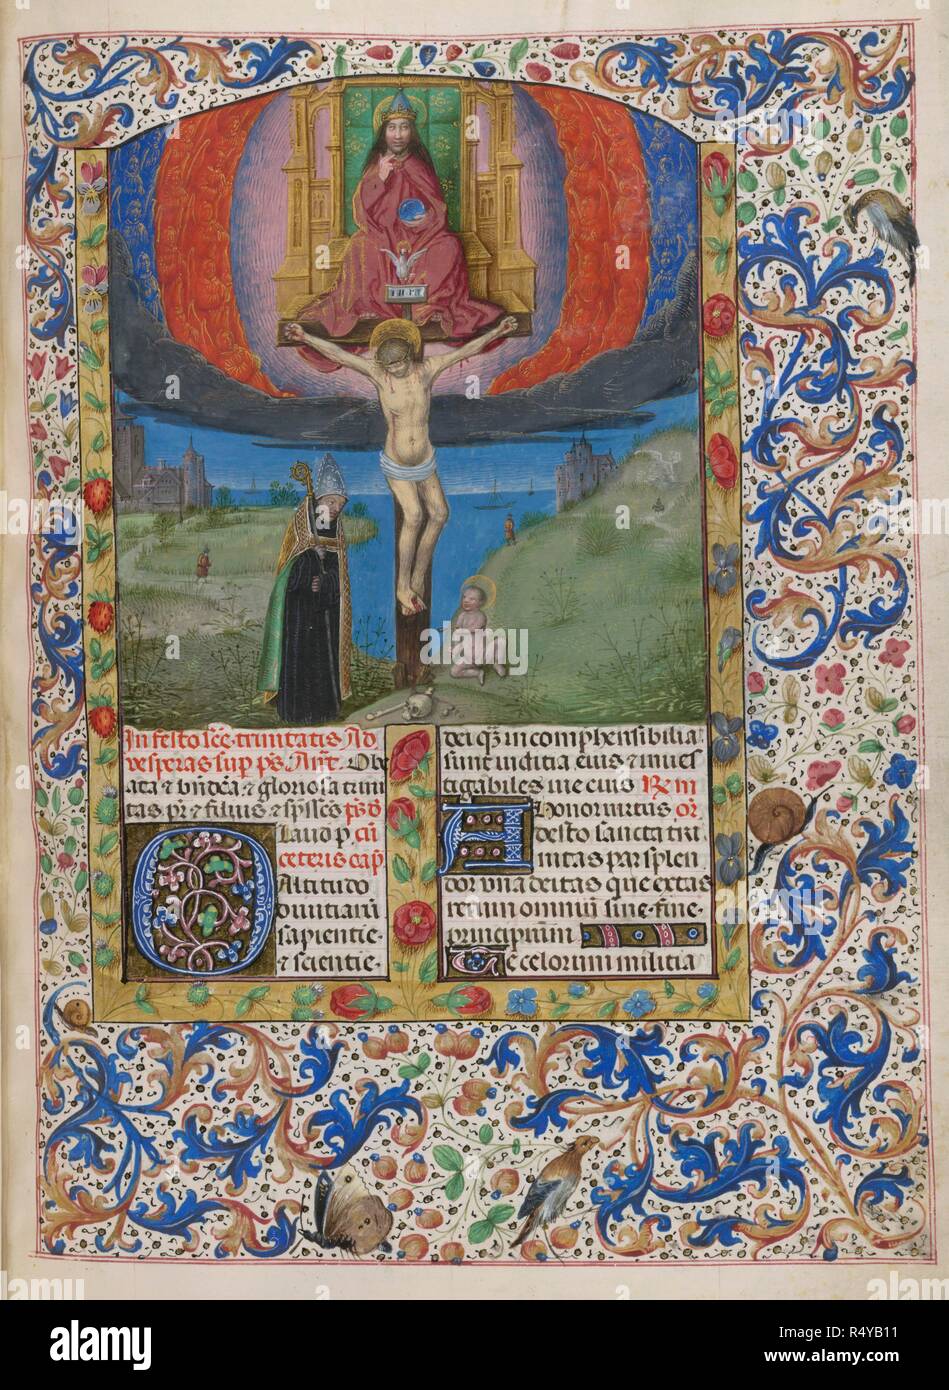 In festo sce. trinitatis Ad
vesperas sup ps Ant. Obe
ata & bndca & gloriosa trini
tas pr & filius & spssces ps d
Laud p cu
ceteris cap
Altitudo
divitiaru
sapientie
& scientie
dei q3 incomphensibilia
sunt iuditia eius & inves
tigabiles uie eius Rm
Honor virtus or
Adesto sancta tri
nitas par splen
dor una deitas que extas
rerum omniu sine fine
principium
Te celorum militia
alamy
Image ID: R4YB11
www.alamy.com